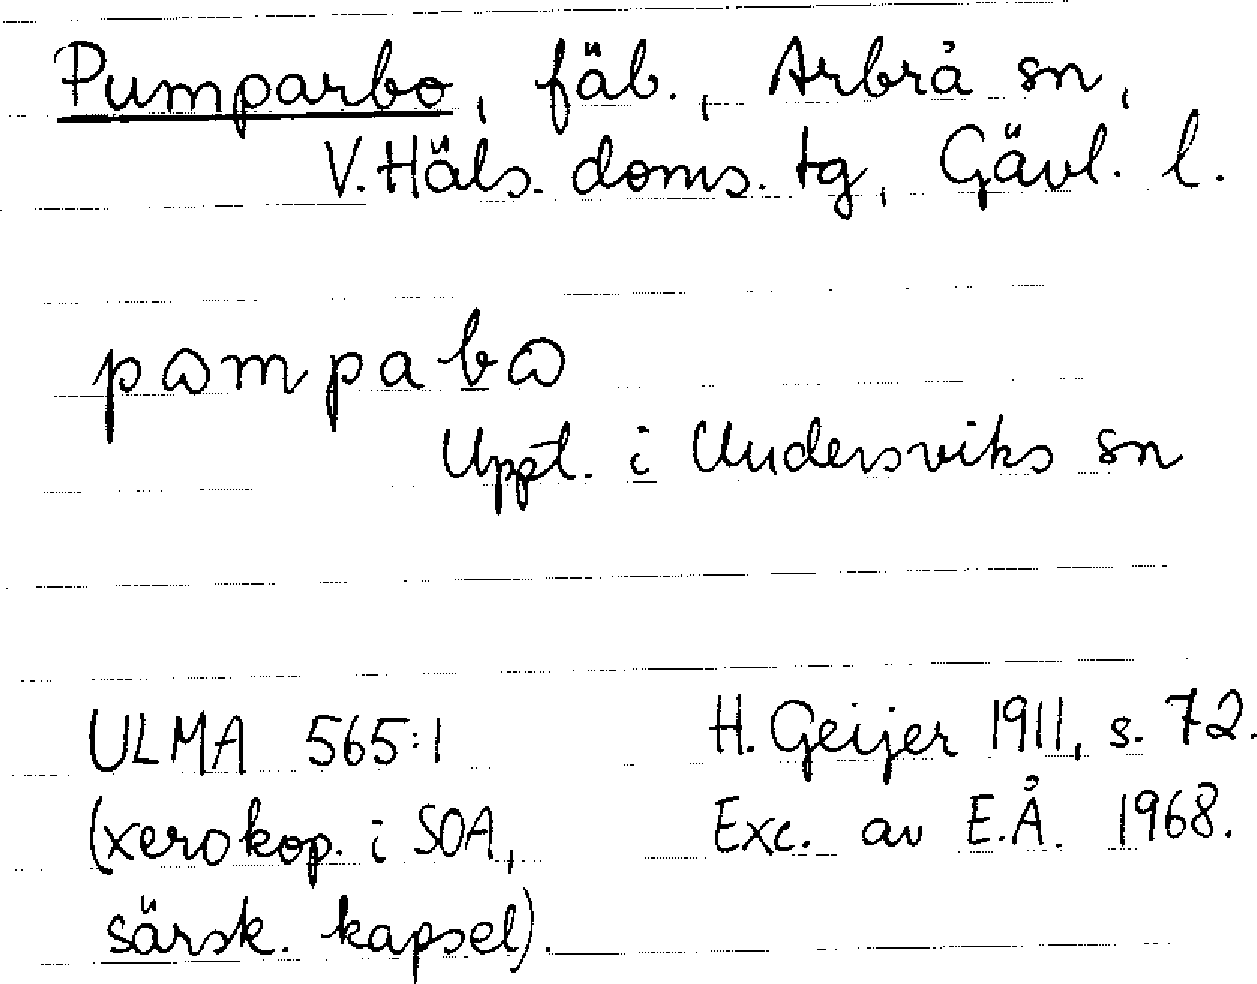 Pumparbo, fäb., Arbrå sn,
V. Häls. doms. tg, Gävl. l.
pɷmpabɷ
Uppt. i Undersviks sn
ULMA 565:1
H. Geijer 1911, s. 72.
(xerokop. i SOA,
Exc. av E.Å. 1968.
särsk. kapsel).